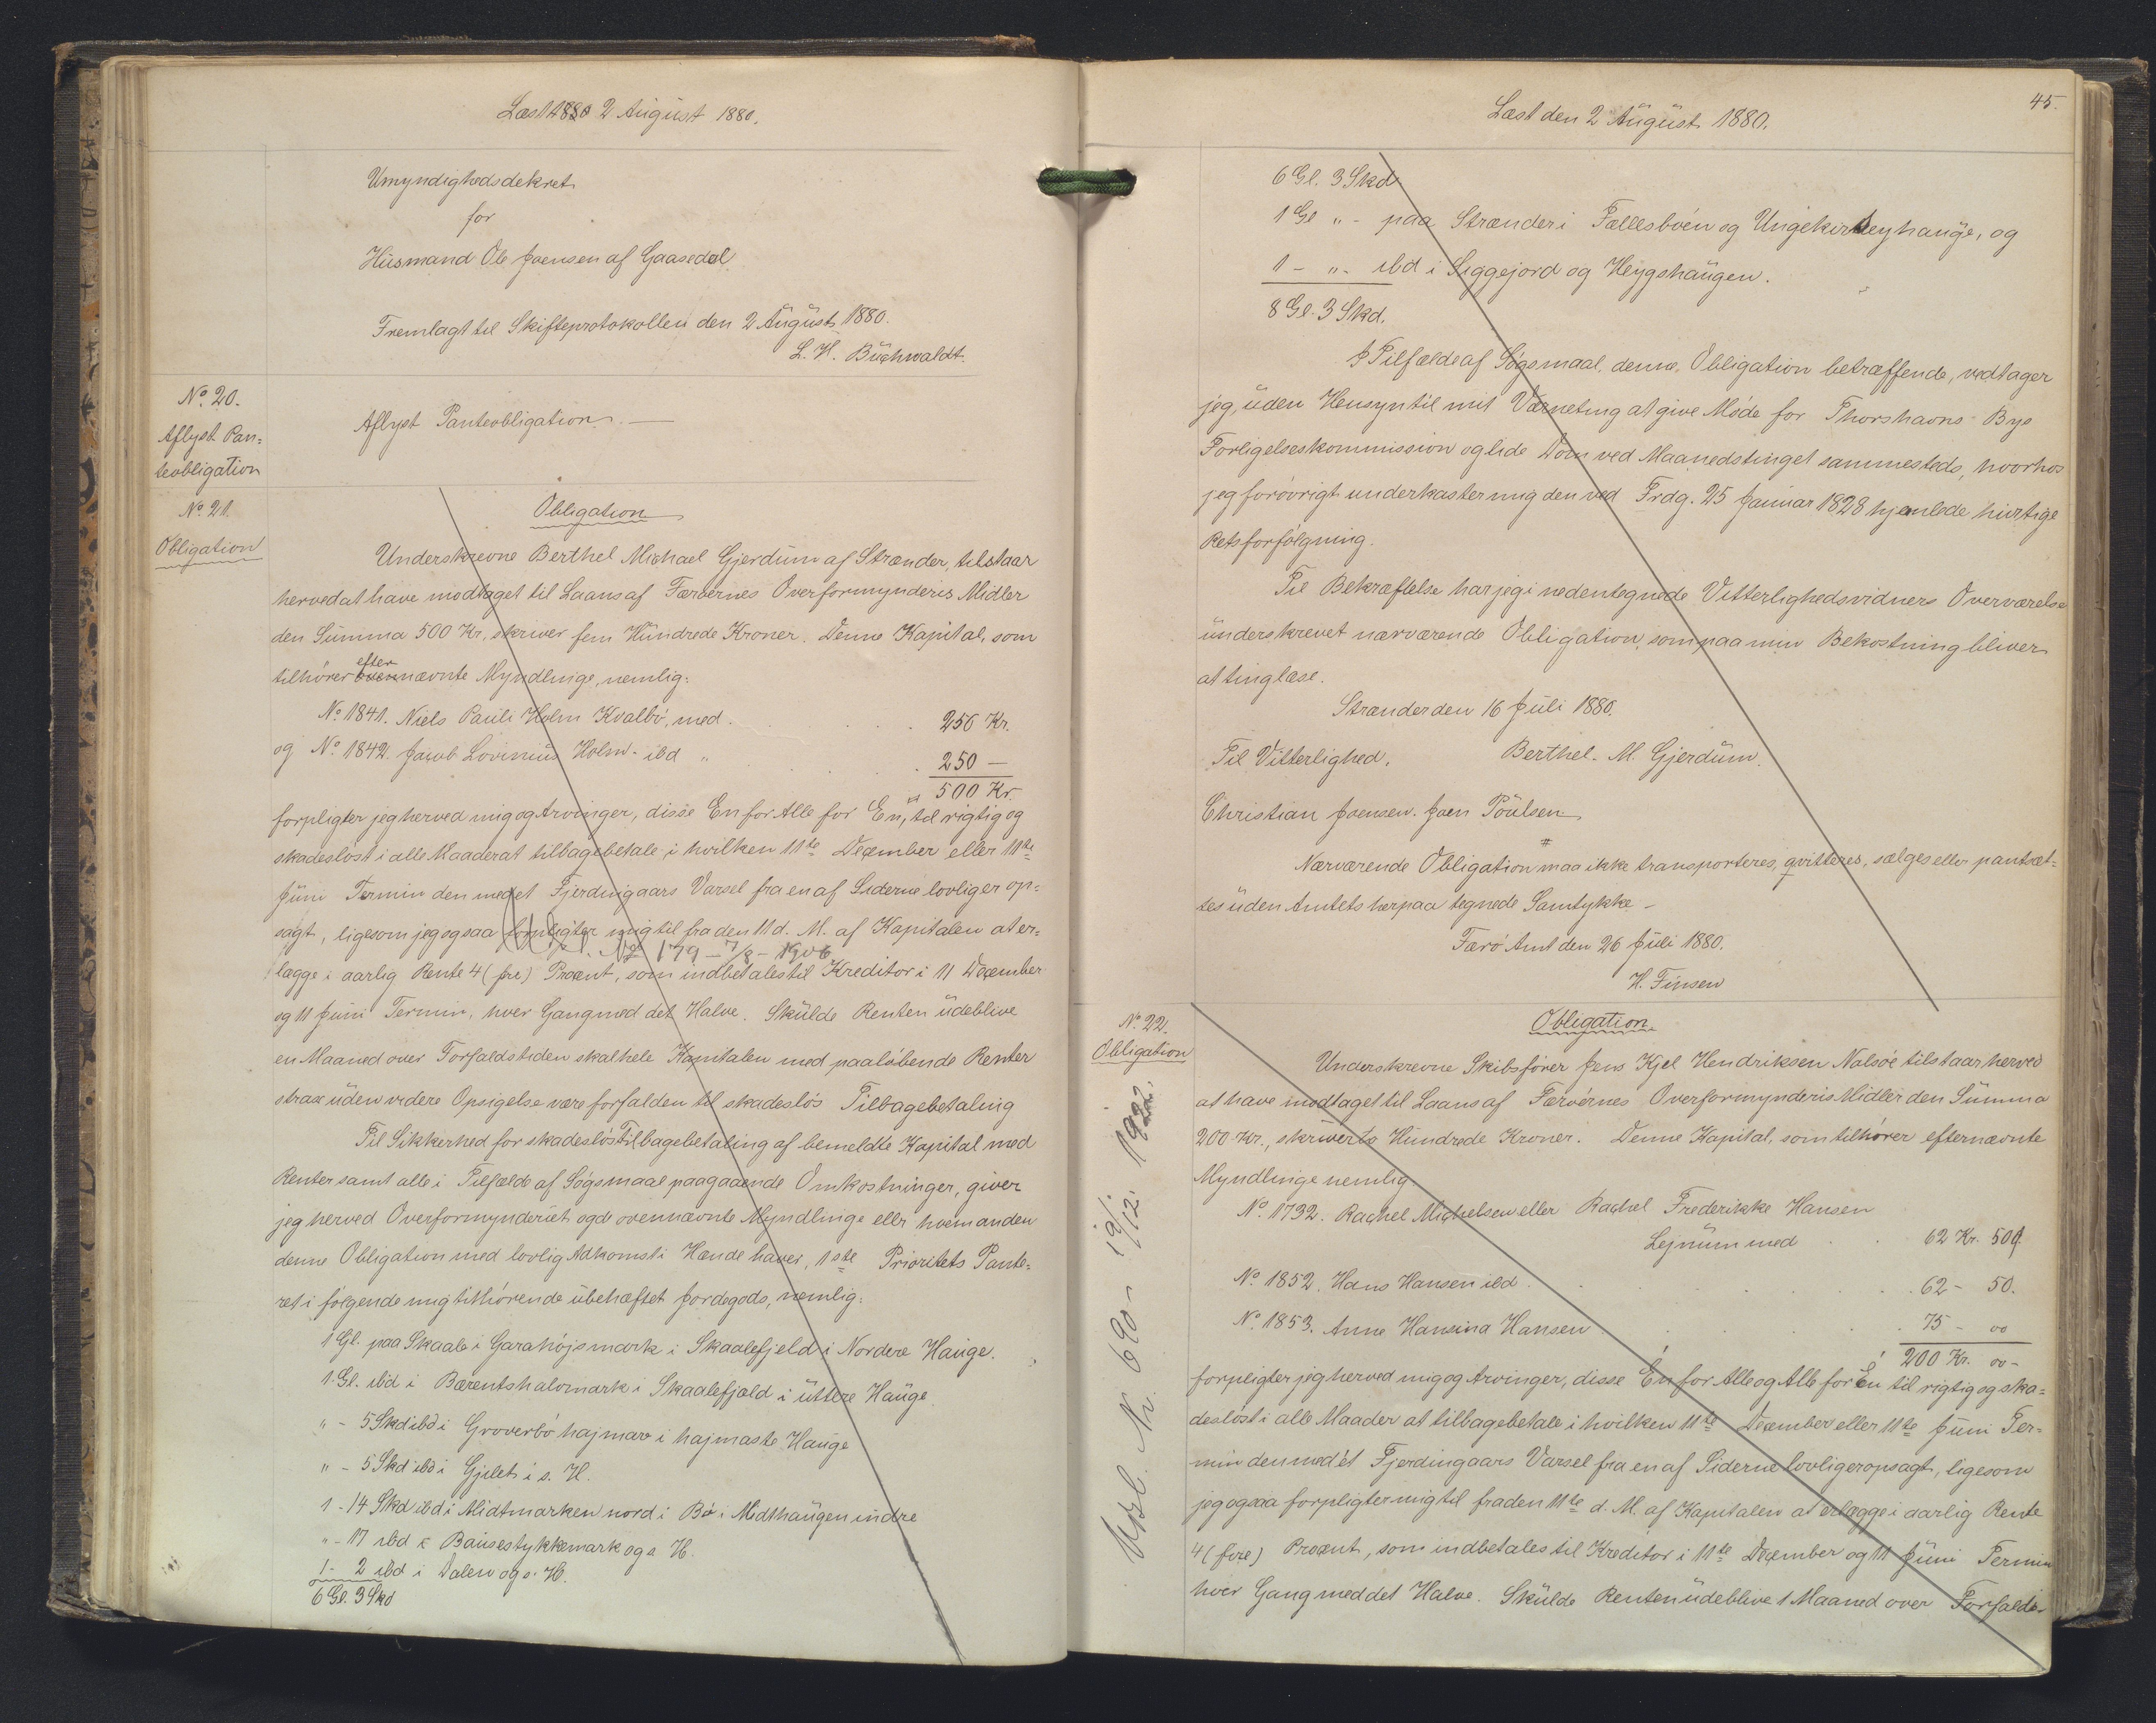 Læst 1880 2 August 1880.
Umyndighedsdekret
for
Husmand Ole Joensen af Gaasedal.
Fremlagt til Skifteprotokollen den 2 August 1880.
L. H. Buchwaldt.
No. 20.
Aflyst Pan=
teobligation
Aflyst Panteobligation. —
No. 21.
Obligation
Obligation
Underskrevne Berthel Michael Gjerdum af Strænder, tilstaar
herved at have modtaget til Laans af Færøernes Overformynderis Midler
den Summa 500 Kr., skriver fem Hundrede Kroner. Denne Kapital, som
tilhører efternævnte Myndlinge, nemlig:
No. 1841. Niels Pauli Holm Kvalbø, med . . . 250 Kr.
og No. 1842. Jacob Lovinius Holm ibd " . . . 250 —
500 Kr.
forpligter jeg herved mig og Arvinger, disse En for Alle for En, til rigtig og
skadesløst i alle Maader at tilbagebetale i hvilken 11te December eller 11te
Juni Termin den med et Fjerdingaars Varsel fra en af Siderne lovlig er op=
sagt, ligesom jeg ogsaa forpligter mig til fra den 11 d. M. af Kapitalen at er=
Udsl. No 179 - 7/8 - 1906
lægge i aarlig Rente 4 (fire) Procent, som indbetales til Kreditor i 11 December
og 11 Juni Termin, hver Gang med det Halve. Skulde Renten udeblive
en Maaned over Forfaldstiden skal hele Kapitalen med paaløbende Renter
strax uden videre Opsigelse være forfalden til skadesløs Tilbagebetaling
Til Sikkerhed for skadesløs Tilbagebetaling af bemeldte Kapital med
Renter samt alle i Tilfælde af Søgsmaal paagaaende Omkostninger, giver
jeg herved Overformynderiet og de ovennævnte Myndlinge eller hvem anden
denne Obligation med lovlig Adkomst i Hænde haver, 1ste Prioritets Pante=
ret i følgende mig tilhørende ubehæftet Jordegods, nemlig:
1 Gl. paa Skaale i Garahøjsmark i Skaalefjeld i Nordere Hauge.
1. Gl. ibd i Bærentshalvmark i Skaalefjeld i üttere Hauge.
" - 5 Skd ibd i Groverbø hajmarv i hajmaste Hauge
" - 5 Skd ibd i Gjilet i s. H.
1 - 14 Skd ibd i Midtmarken nord i Bø i Midthaugen indre
" - 17 ibd i Bausestykkemark og s. H.
1 - 2 ibd i Dalen og s. H.
6 Gl. 3 Skd
45.
Læst den 2 August 1880.
6 Gl. 3 Skd
1 Gl " - paa Strænder i Fællesbøen og Ungekirkeyhauge, og
1 - " - ibd i Siggejord og Heygshaugen.
8 Gl. 3 Skd.
I Tilfælde af Søgsmaal, denne Obligation betræffende, vedtager
jeg, uden Hensyn til mit Værneting at give Møde for Thorshavns Bys
Forligelseskommission og lide Dom ved Maanedstinget sammesteds, hvorhos
jeg forøvrigt underkaster mig den ved Frdg. 25 Januar 1828 hjemlede hurtige
Retsforfølgning.
Til Bekræftelse har jeg i nedentegnede Vitterlighedsvidners Overværelse
underskrevet nærværende Obligation, som paa min Bekostning bliver
at tinglæse.
Strænder den 16 Juli 1880.
Til Vitterlighed. Berthel. M. Gjerdum.
Christian Joensen. Joen Poulsen
Nærværende Obligation maa ikke transporteres, qvitteres, sælges eller pantsæt=
tes uden Amtets herpaa tegnede Samtykke -
Færø Amt den 26 Juli 1880.
H. Finsen
No. 22.
Obligation
Udsl. Nr. 690 - 19/12. 1922.
Obligation.
Underskrevne Skibsfører Jens Kjel Hendriksen Nalsøe tilstaar herved
at have modtaget til Laans af Færøernes Overformynderis Midler den Summa
200 Kr., skriver to Hundrede Kroner. Denne Kapital, som tilhører efternævnte
Myndlinge nemlig
No. 1732. Rachel Michelsen eller Rachel Frederikke Hansen
Lejnum med . . 62 Kr. 50 Ø
No. 1852. Hans Hansen ibd . . . 62 - 50.
No. 1853. Anne Hansina Hansen . . . 75 - 00
200 Kr. 00 -
forpligter jeg herved mig og Arvinger, disse En for Alle og Alle for En til rigtig og ska=
desløst i alle Maader at tilbagebetale i hvilken 11te December eller 11te Juni Ter=
min den med ét Fjerdingaars Varsel fra en af Siderne lovlig er opsagt, ligesom
jeg ogsaa forpligter mig til fra den 11te d. M. af Kapitalen at erlægge i aarlig Rente
4 (fire) Procent, som indbetales til Kreditor i 11te December og 11 Juni Termin
hver Gang med det Halve. Skulde Renten udeblive 1 Maaned over Forfalds-